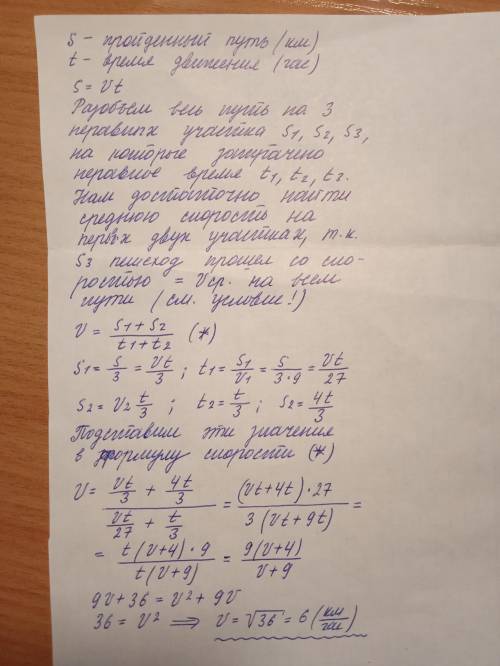 s – пройденный путь (км)
t – время движения (час)
s = Vt
Разобьём весь путь на 3
неравных участка s1, s2, s3,
на которые затрачено
неравное время t1, t2, t3.
Нам достаточно найти
среднюю скорость на
первых двух участках, т.к.
s3 пешеход прошел со ско-
ростью = Vср. на всем
пути (см. условие!)
V = (s1 + s2)/(t1 + t2) (*)
s1 = s/3 = Vt/3 ; t1 = s1/V1 = s/(3·9) = Vt/27
s2 = V2 t/3 ; t2 = t/3 ; s2 = 4t/3
Подставим эти значения
в формулу скорости (*)
V = (Vt/3 + 4t/3)/(Vt/27 + t/3) = (Vt+4t)·27/3(Vt+9t) =
= t(V+4)·9/t(V+9) = 9(V+4)/(V+9)
9V + 36 = V² + 9V
36 = V² ⟹ V = √36 = 6 (км/час)